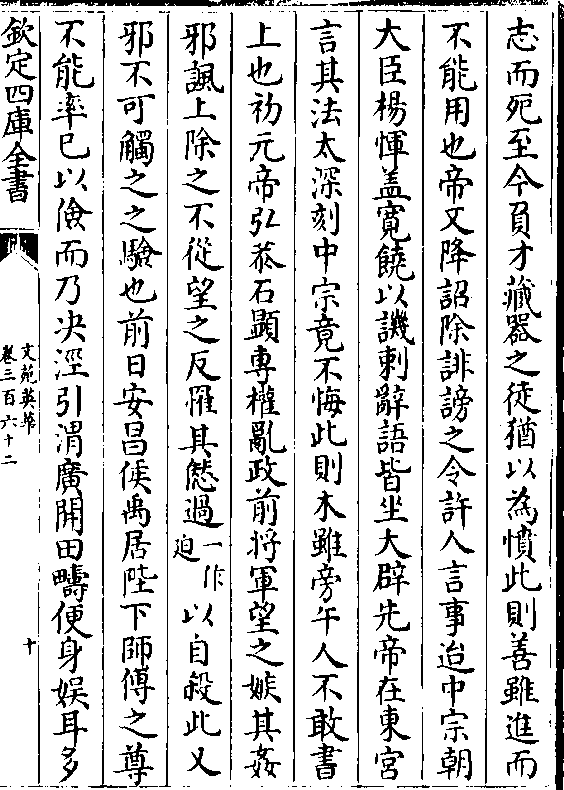 志而死至今負才藏器之徒猶以為憤此則善雖進而
不能用也帝文降詔除誹謗之令許人言事迨中宗朝
大臣楊惲盖寛饒以譏刺辭語皆坐大辟先帝在東宮
言其法太深刻中宗竟不悔此則木雖旁午人不敢書
上也初元帝弘恭石顯專權亂政前將軍望之嫉其姦
邪諷上除之不從望之反罹其愆過一作廹以自殺此又
邪不可觸之之驗也前日安昌侯禹居陛下師傅之尊
不能率已以儉而乃决涇引渭廣開田疇便身娱耳多
欽定四庫全書
文苑英華
卷三百六十二
十